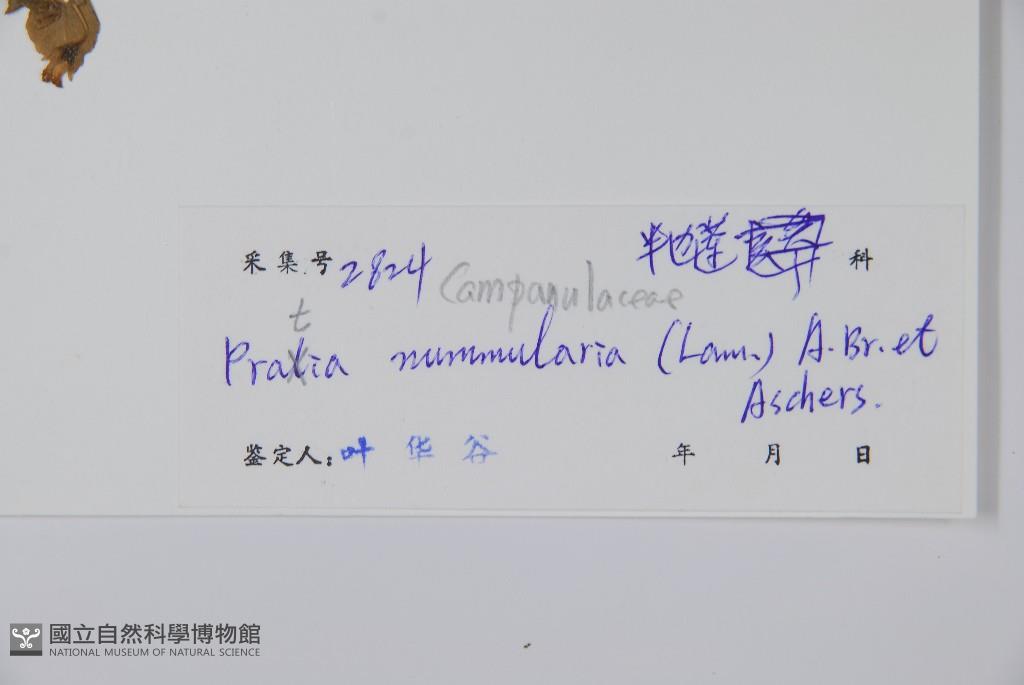 采集号 2824 半边莲 科
Campanulaceae
t
Pralia nummularia (Lam.) A.Br.et
Aschers.
鉴定人: 叶华谷 年 月 日
國立自然科學博物館
NATIONAL MUSEUM OF NATURAL SCIENCE